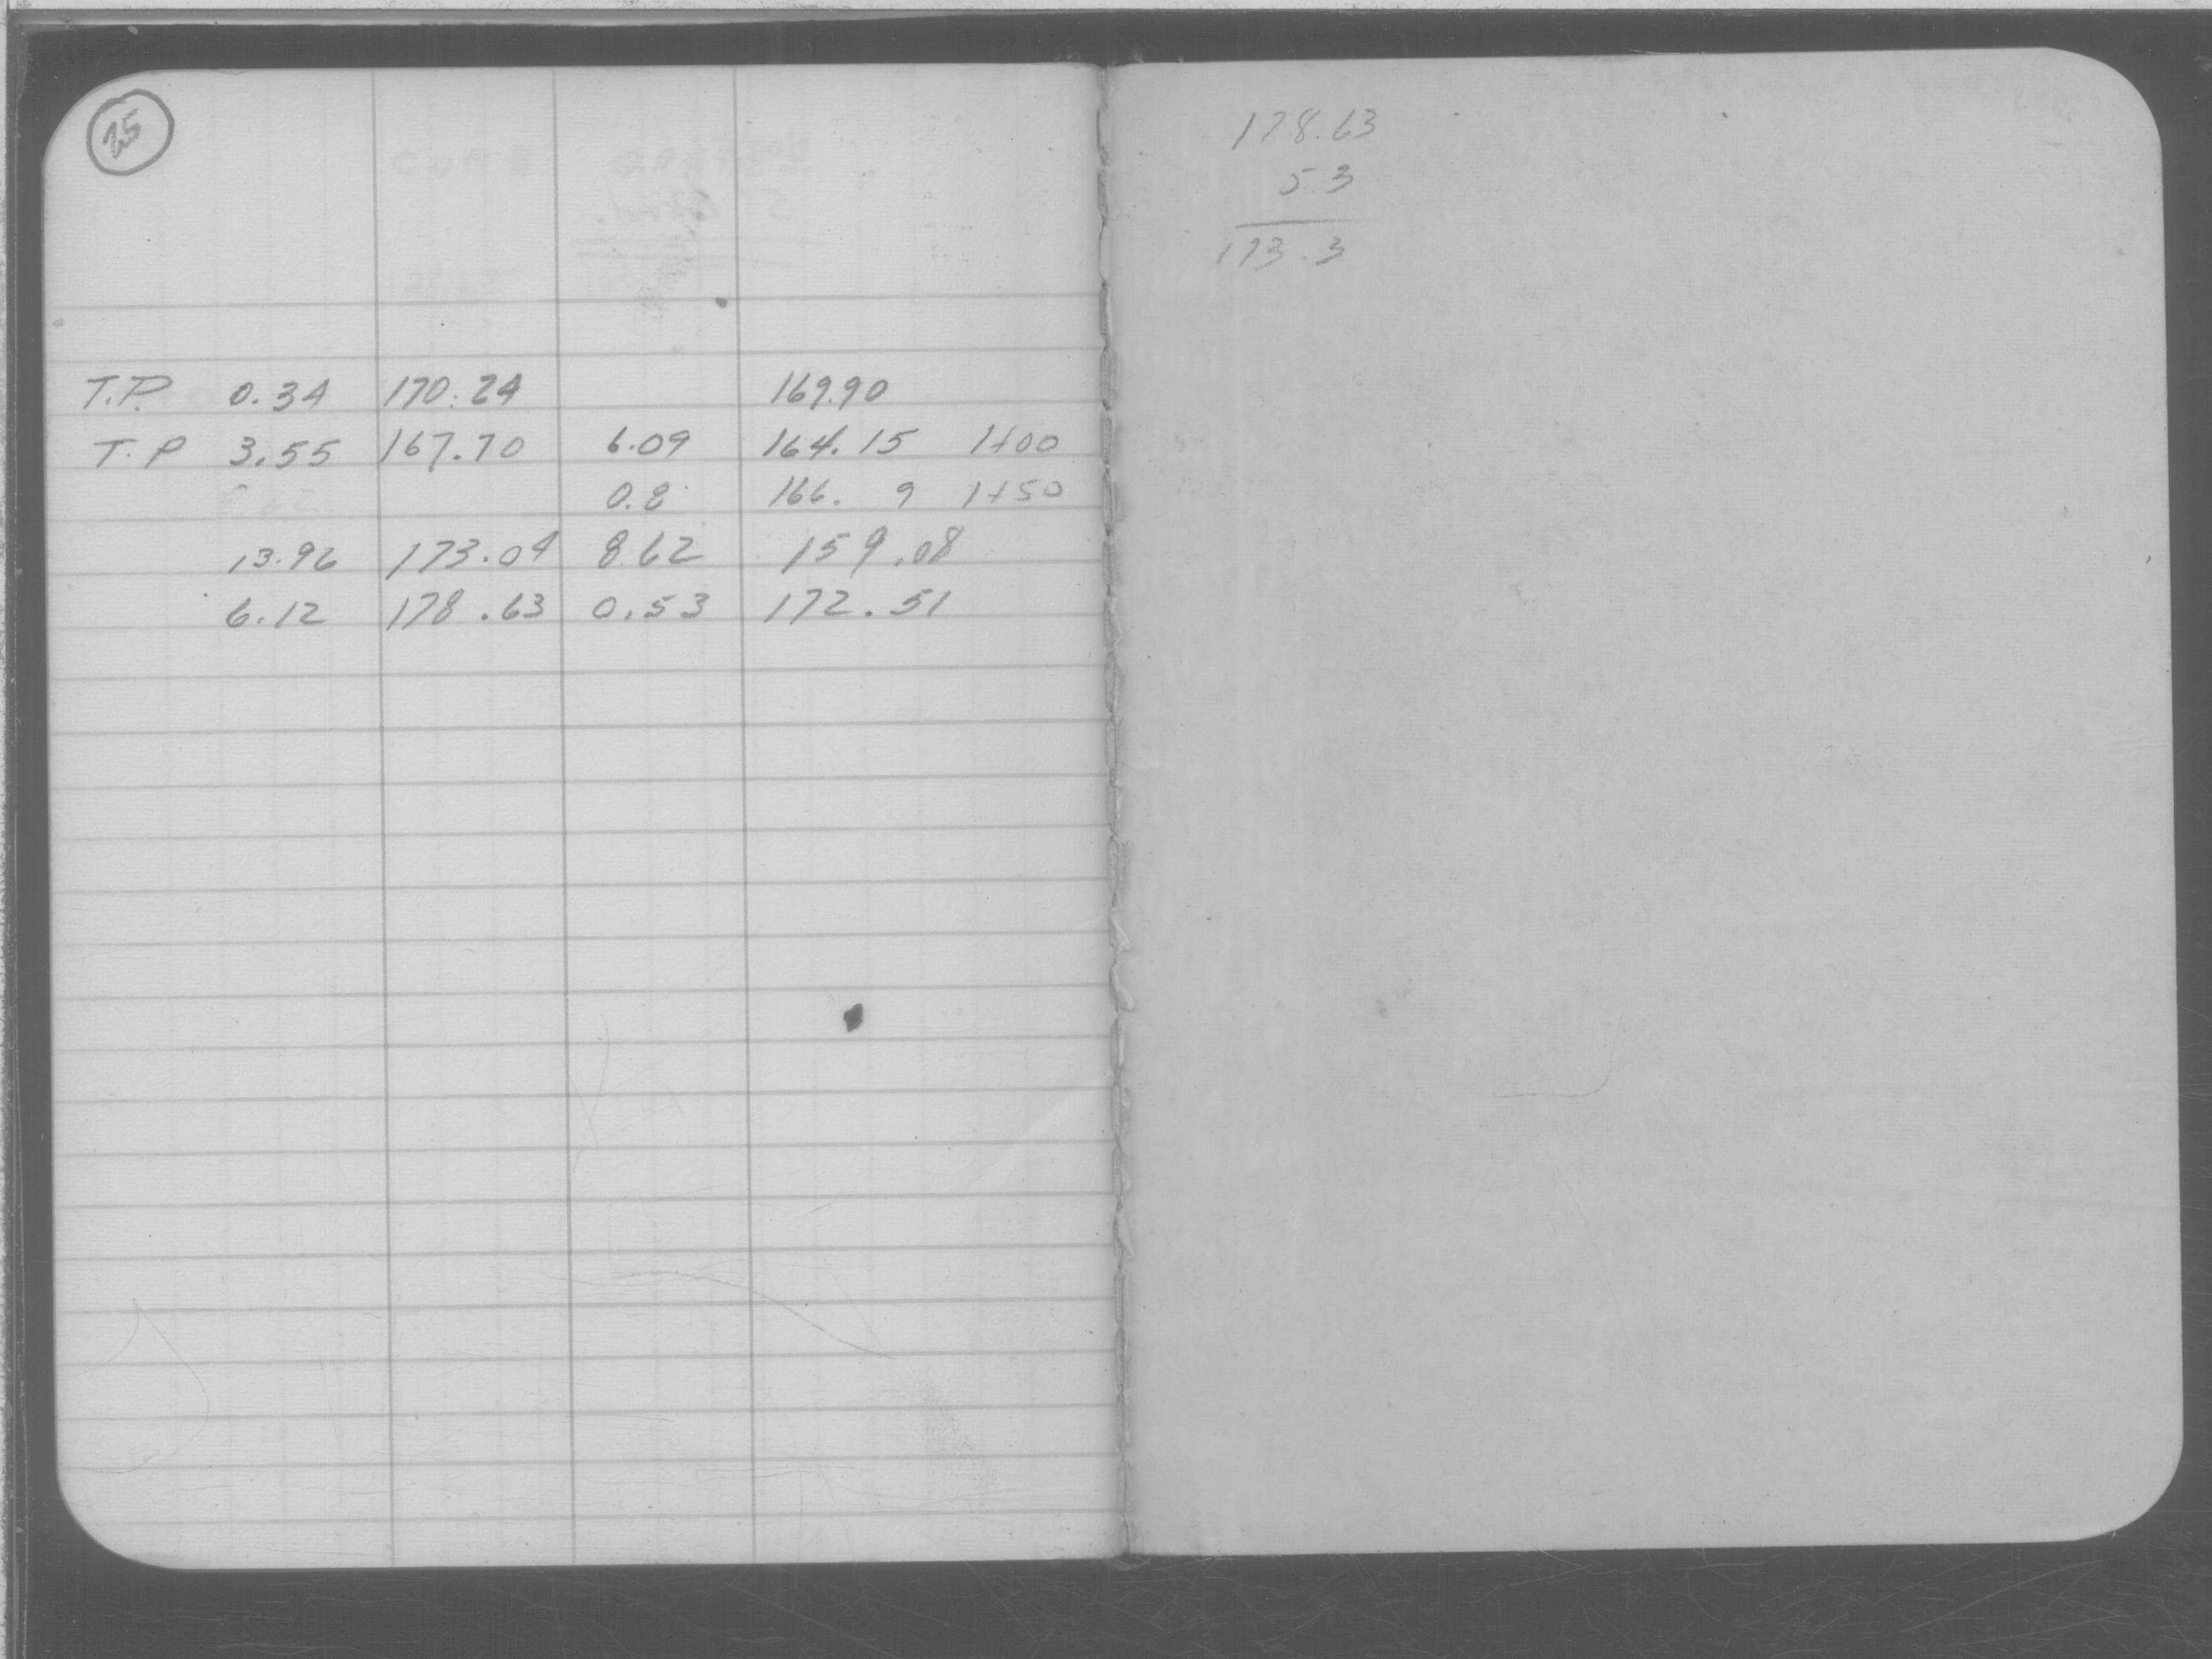 25
T.P. 0.34 170.24 169.90
T.P 3.55 167.70 6.09 164.15 1+00
0.8 166. 9 1+50
13.96 173.04 8.62 159.08
6.12 178.63 0.53 172.51
178.63
5 3
173.3